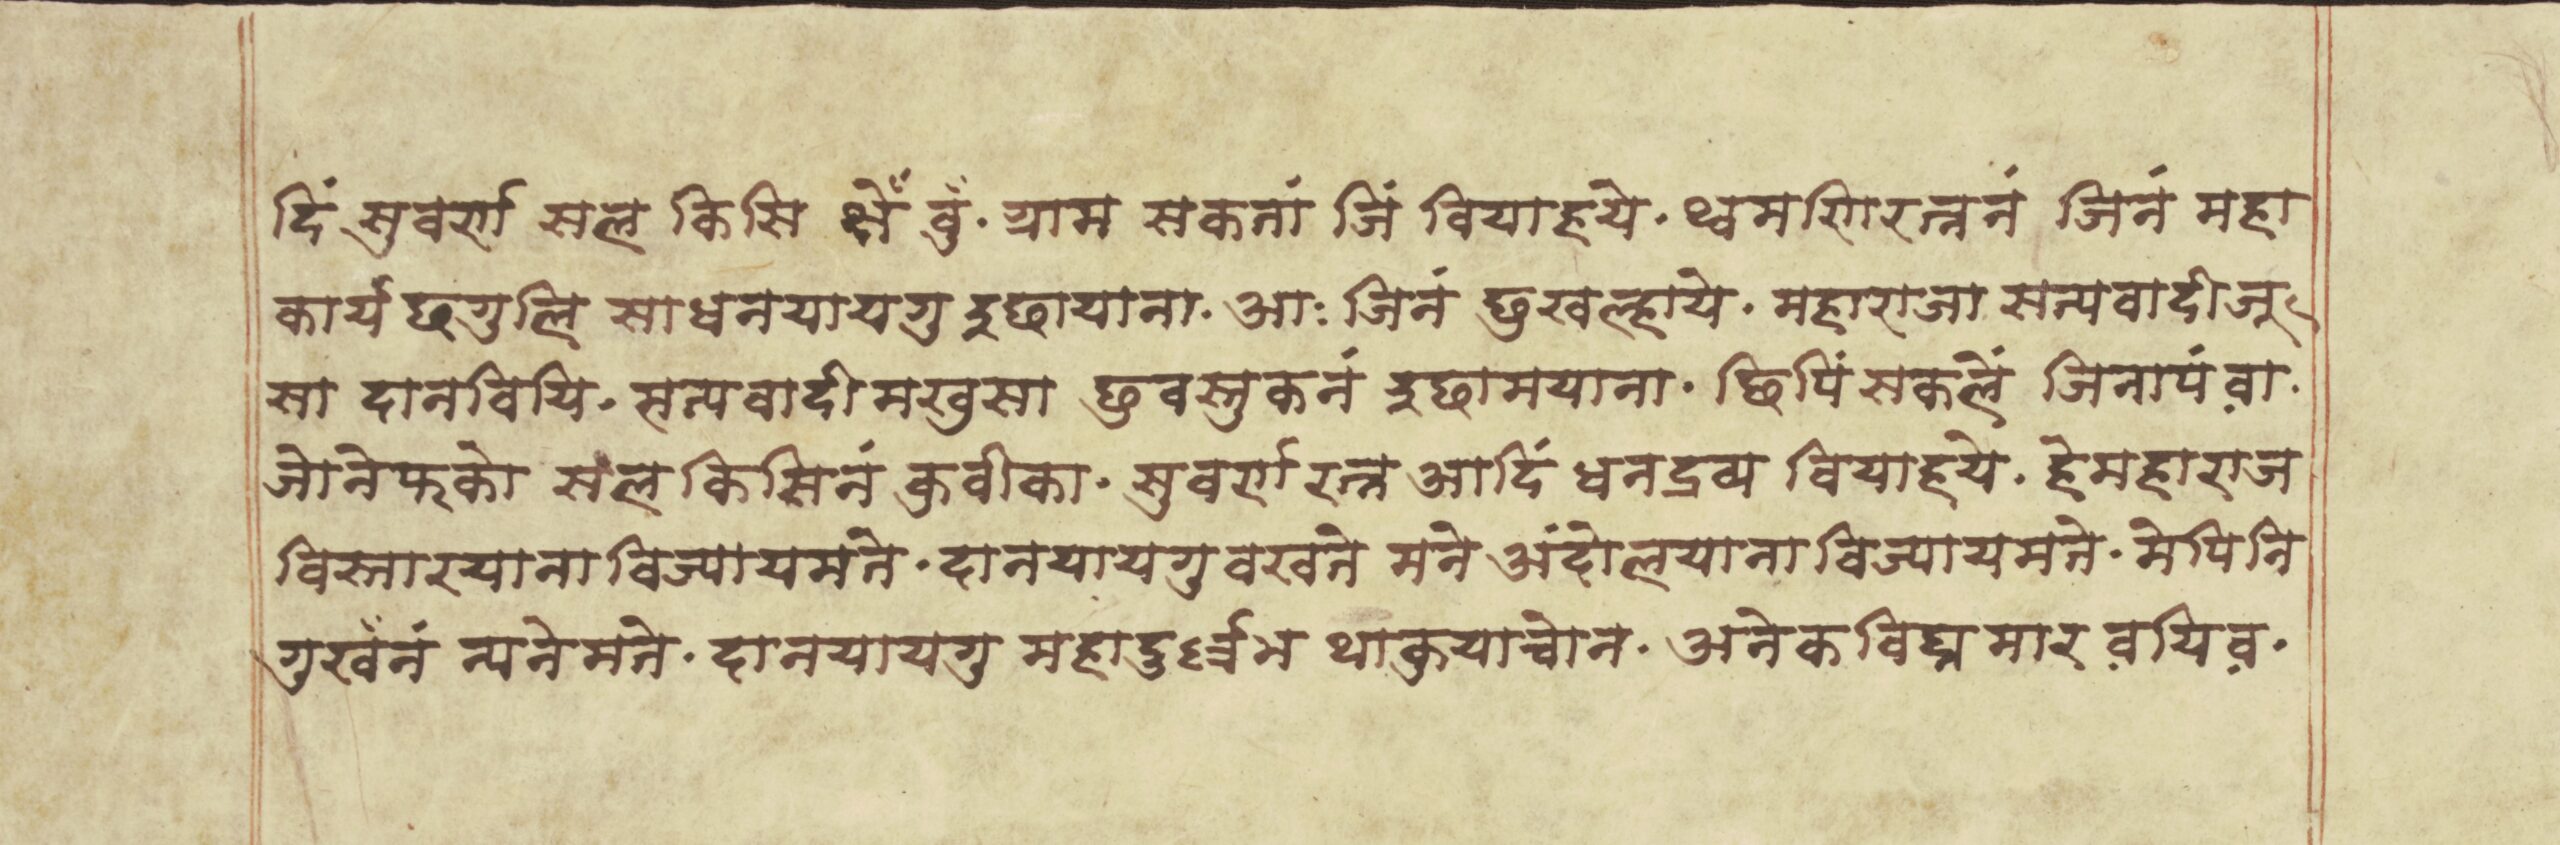 दिं सुवर्ण सल किसि छेँ वुं. ग्राम सकतां जिं वियाहये. थ्वमणिरत्ननं जिनं महा
कार्य छगुलि साधनयायगु इछायाना. आः जिनं छुखल्हाये. महाराजा सत्यवादीजू
सा दानवियि. सत्यवादीमखुसा छुवस्तुकनं इछामयाना. छिपिं सकलें जिनापं व़ा.
जोनेफको सल किसिनं कुवीका. सुवर्ण रत्न आदिं धनद्रव्य वियाहये. हेमहाराज
विस्तारयाना विज्यायमते. दानयायगु वखते मने अंदोलयाना विज्यायमते. मेपिनि
गुखँनं न्यनेमते. दानयायगु महादुर्ल्लभ थाकुयाच्वोन. अनेक विघ्न मार व़यिव़.